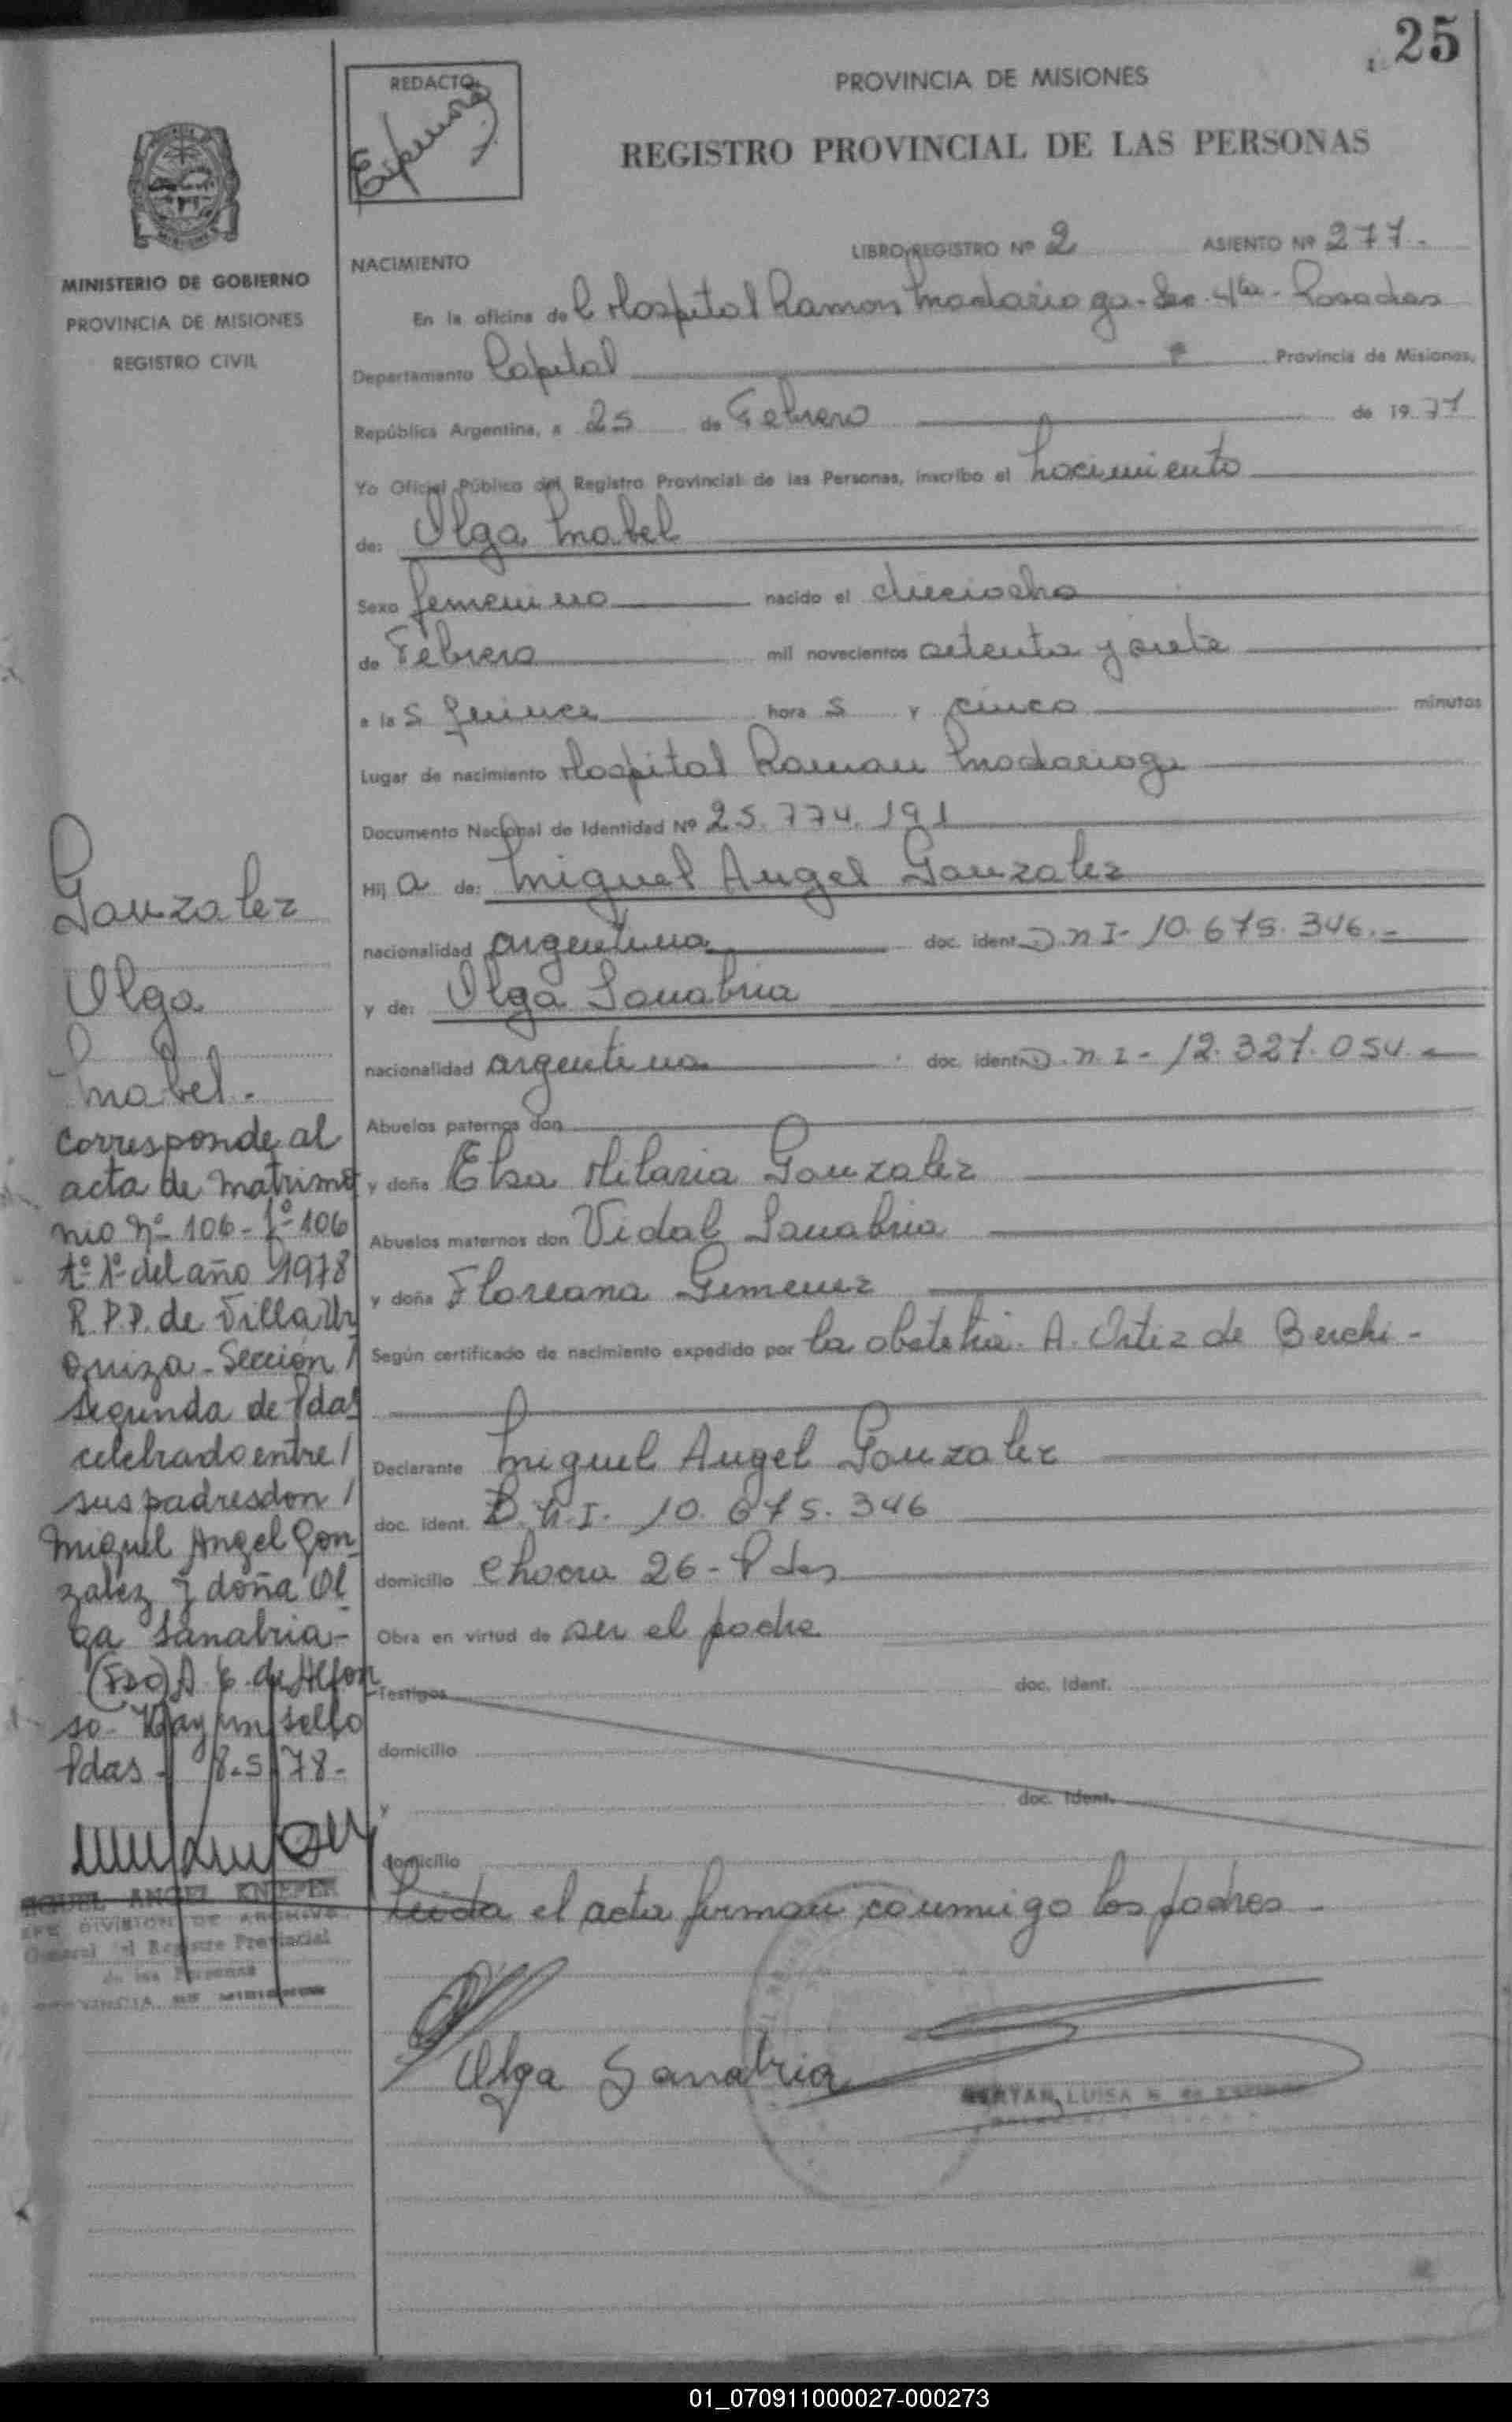 25
REDACTO
PROVINCIA DE MISIONES
REGISTRO PROVINCIAL DE LAS PERSONAS
MINISTERIO DE GOBIERNO
PROVINCIA DE MISIONES
REGISTRO CIVIL
NACIMIENTO
LIBRO REGISTRO Nº 2 ASIENTO Nº 277.-
En la oficina del Hospital Ramon Madariaga - Sec. 4ta - Posadas
Departamento Capital Provincia de Misiones,
República Argentina, a 25 de Febrero de 1977
Yo Oficial Público del Registro Provincial de las Personas, inscribo el nacimiento
de: Olga Mabel
Sexo femenino nacido el dieciocho
de Febrero mil novecientos setenta y siete
a las quince horas y cinco minutos
Lugar de nacimiento Hospital Ramon Madariaga
Documento Nacional de Identidad Nº 25.774.191
Hija de: Miguel Angel Gonzalez
nacionalidad argentina doc. ident. D.N.I- 10.675.346.-
y de: Olga Sanabria
nacionalidad argentina doc. ident. D.N.I- 12.327.054.-
Abuelos paternos don
y doña Elsa Hilaria Gonzalez
Abuelos maternos don Vidal Sanabria
y doña Floreana Gimenez
Según certificado de nacimiento expedido por la obstetra. A. Ortiz de Berchi-
Declarante Miguel Angel Gonzalez
doc. ident. D.N.I. 10.675.346
domicilio Chacra 26 - Pdas
Obra en virtud de ser el padre
Testigos doc. ident.
domicilio
y doc. ident.
domicilio
Leida el acta firman conmigo los padres -
Olga Sanabria
LUISA
Gonzalez
Olga
Mabel.
Corresponde al
acta de matrimo
nio Nº 106 - fº 106
tº 1º del año 1978
R.P.P. de Villa Ur
quiza - Sección /
segunda de Pdas
celebrado entre /
sus padres don /
Miguel Angel Gon
zalez y doña Ol
ga Sanabria -
(Fdo) A. E. de Alfon
so - Hay un sello
Pdas - 8-5-78-
MIGUEL ANGEL KNIEPER
JEFE DIVISION DE ARCHIVO
General del Registro Provincial
de las Personas
PROVINCIA DE MISIONES
01_070911000027-000273